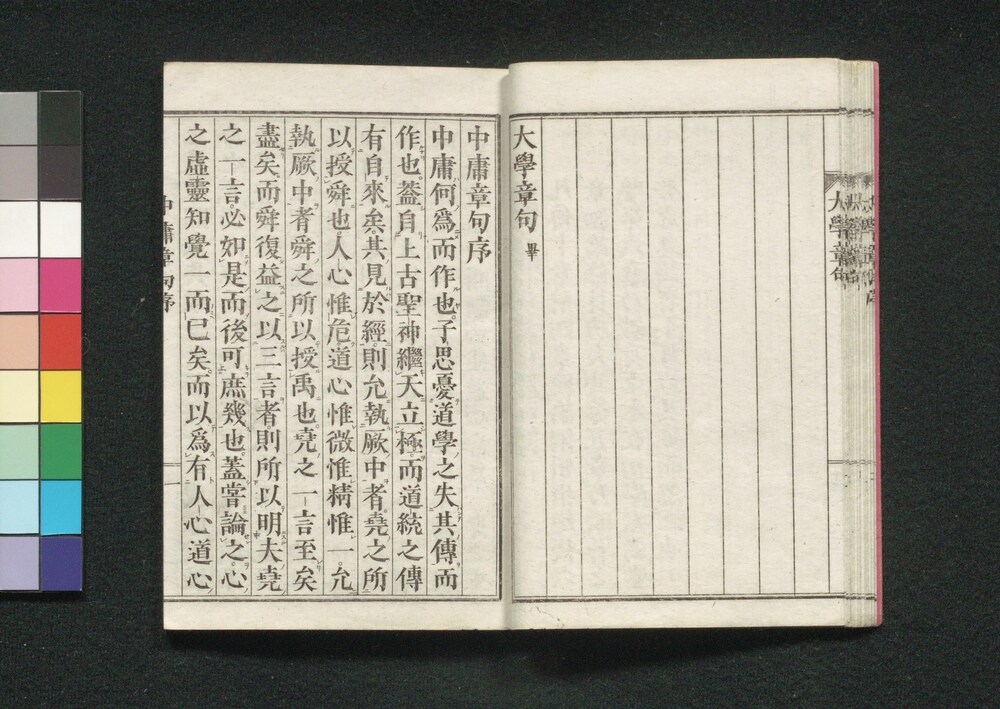 大學章句
大學章句畢
中庸章句序
中庸何爲而作也子思子憂道學之失其傳而
作也蓋自上古聖神繼天立極而道統之傳
有自來矣其見於經則允執厥中者堯之所
以授舜也人心惟危道心惟微惟精惟一允
執厥中者舜之所以授禹也堯之一言至矣
盡矣而舜復益之以三言者則所以明夫堯
之一言必如是而後可庶幾也蓋嘗論之心
之虛靈知覺一而已矣而以爲有人心道心
中庸章句序
一